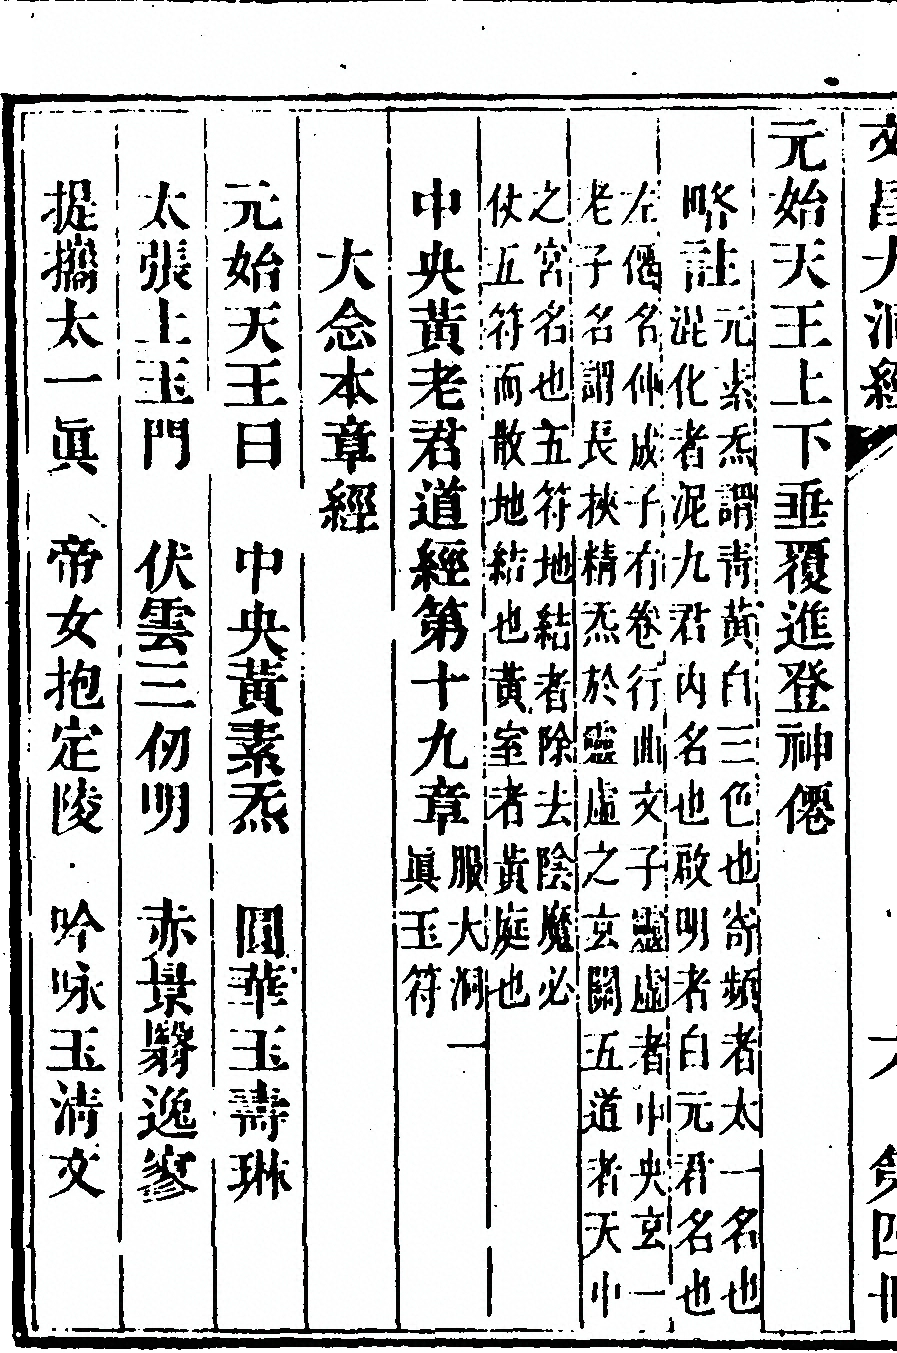 文昌大洞經 第四冊
元始天王上下垂覆進登神僊
略註
元素炁謂青黃白三色也寄頻者太一名也
混化者泥九君内名也啟明者白元君名也
左僊名仲成子有卷行曲文子靈虛者中央玄一
老子名謂長挾精炁於靈虛之玄關五道者天中
之宮名也五符地結者除去陰魔必
仗五符而散地結也黃室者黃庭也
中央黃老君道經第十九章
服大洞一
眞玉符
大念本章經
元始天王曰 中央黃素炁 圓華玉壽琳
太張上玉門 伏雲三仞明 赤景翳逸寥
捉攜太一眞 帝女抱定陵 吟咏玉清文